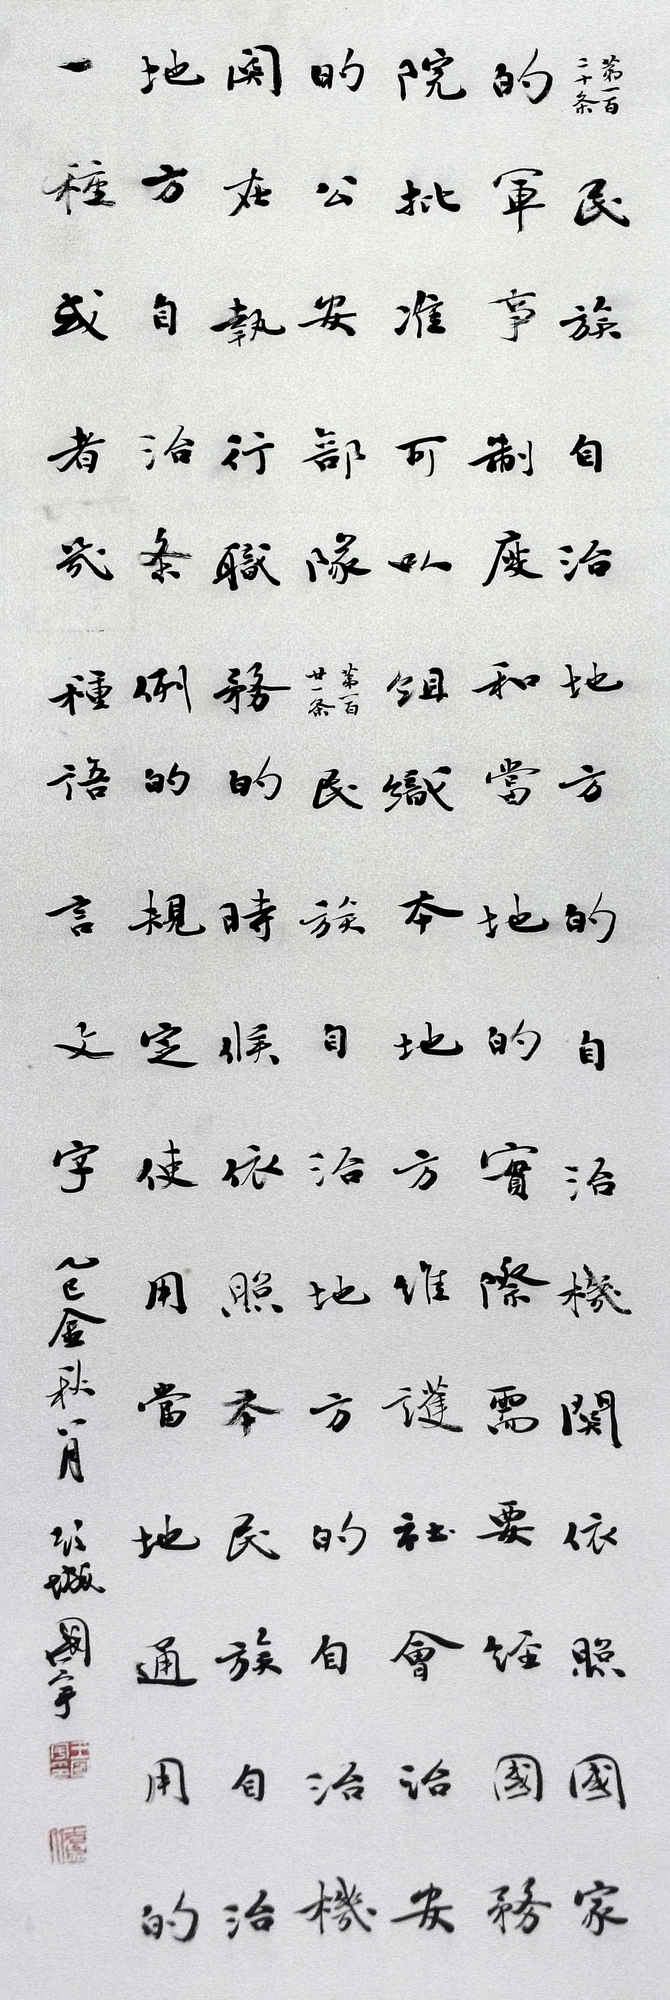 第一百二十条民族自治地方的自治機關依照國家
的軍事制度和當地的實際需要經國務
院批准可以組織本地方維護社會治安
的公安部隊第一百廿一条民族自治地方的自治機
關在執行職務的時候依照本民族自治
地方自治条例的規定使用當地通用的
一種或者幾種語言文字乙巳金秋八月項城國宇